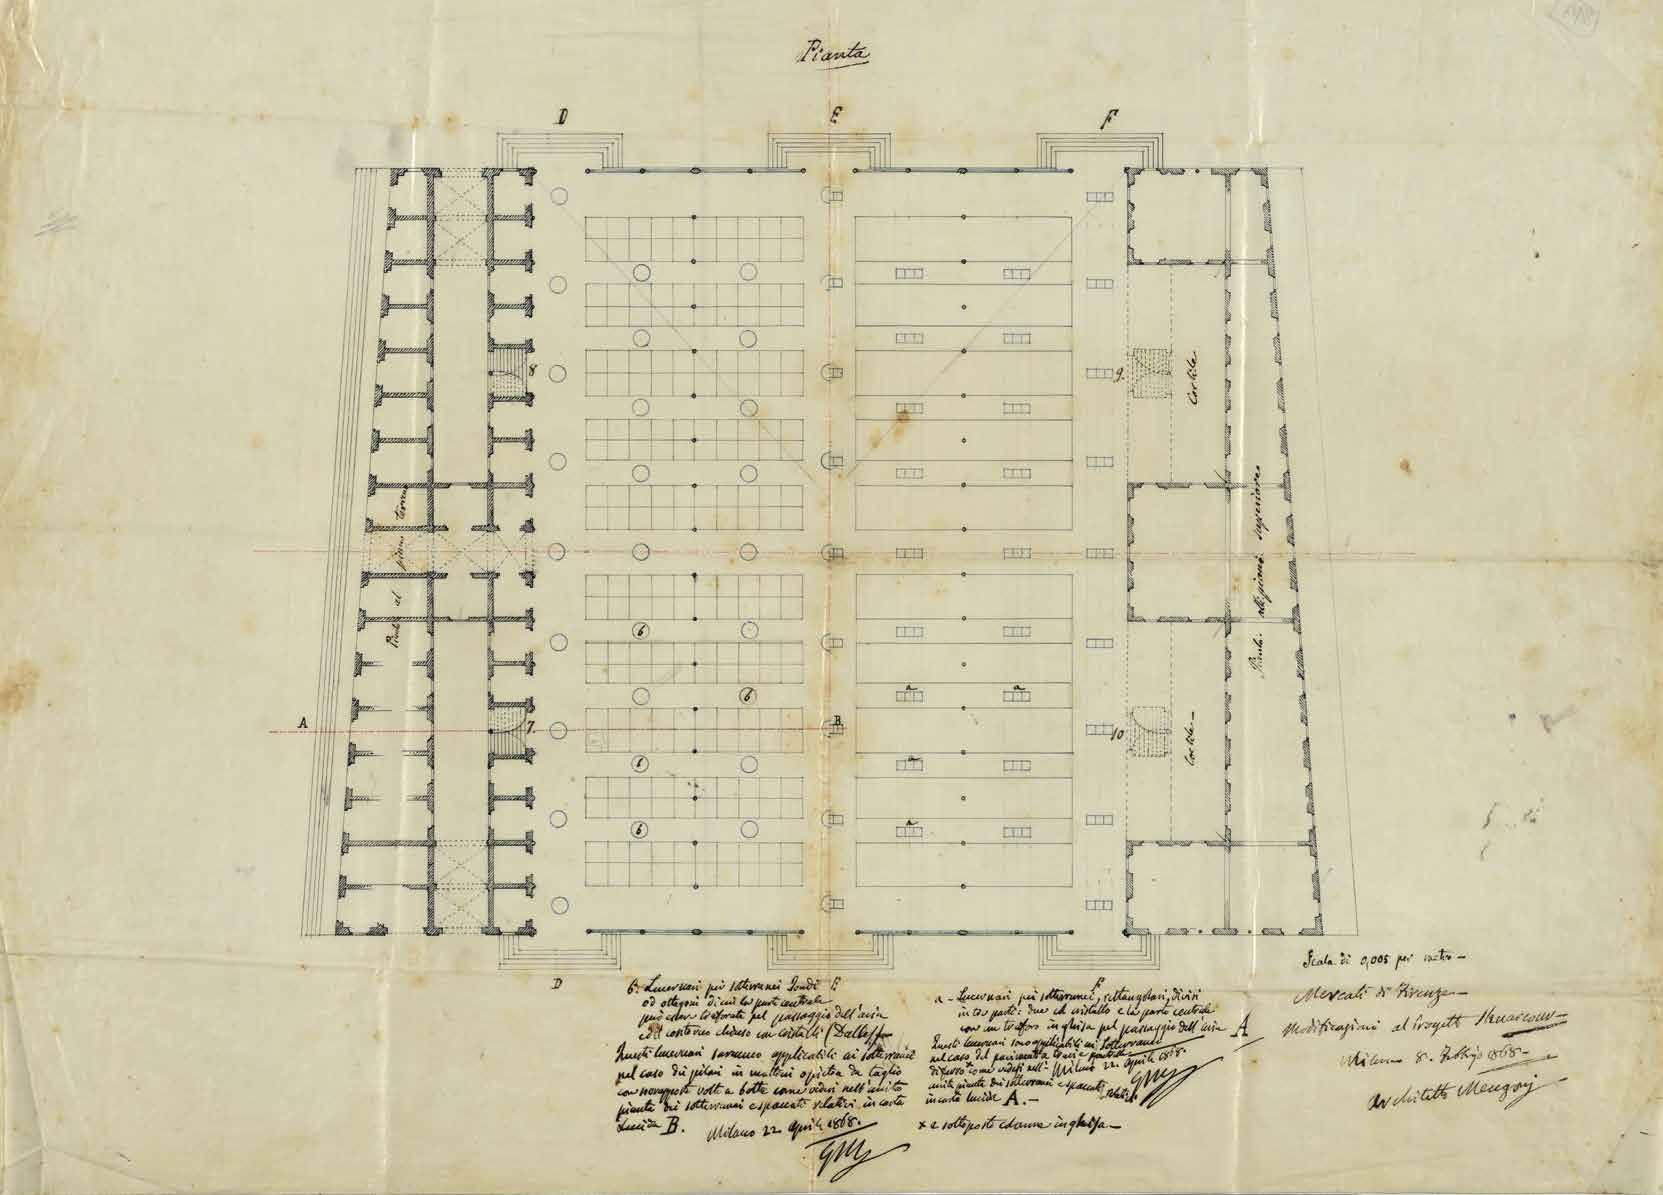 Pianta
D E F
8
9.
Cortile
Pianta al piano terreno
Pianta del piano superiore
6
6
a a
A
7.
B
10
Cortile
6
a
6
a
D E F
Scala di 0,005 per metro
6. Lucernari per sotterranei Tondi
od ottagoni di cui la parte centrale
può essere traforata pel passaggio dell'aria
ed il contorno chiuso con cristalli (Dalles)
Questi lucernari saranno applicabili ai sotterranei
nel caso di pilari in mattoni o pietra da taglio
con sovrapposte volte a botte come vedesi nell'unita
pianta dei sotterranei e spaccati relativi in carta
Lucida B. Milano 22 Aprile 1868.
GM
a - Lucernari pei sotterranei, rettangolari, divisi
in tre parti: due di cristallo e la parte centrale
con un traforo in ghisa pel passaggio dell'aria A
Questi lucernari sono applicabili ai sotterranei
nel caso del pavimento a
di ferro x come vedesi nell'
unita pianta dei sotterranei e spaccati relativi
in carta lucida A.
Milano 22 Aprile 1868.
GM
x e sottoposte colonne in ghisa
Mercati di Firenze
Modificazioni al progetto
Milano 8. Febbrajo 1868
Architetto Mengoni